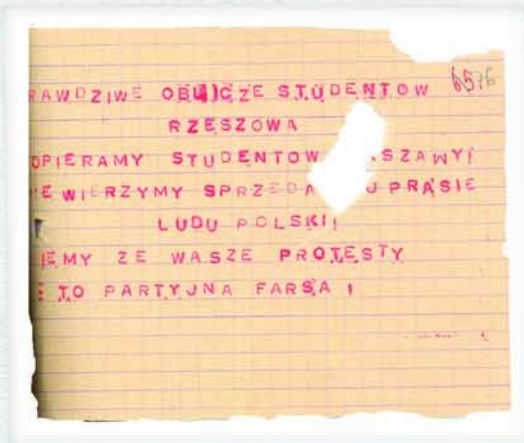 RAWDZIWE OBLICZE STUDENTOW 6576
RZESZOWA
OPIERAMY STUDENTOW SZAWY!
WIERZYMY SPRZEDA PRASIE
LUDU POLSKI!
IEMY ZE WASZE PROTESTY
TO PARTYJNA FARSA!